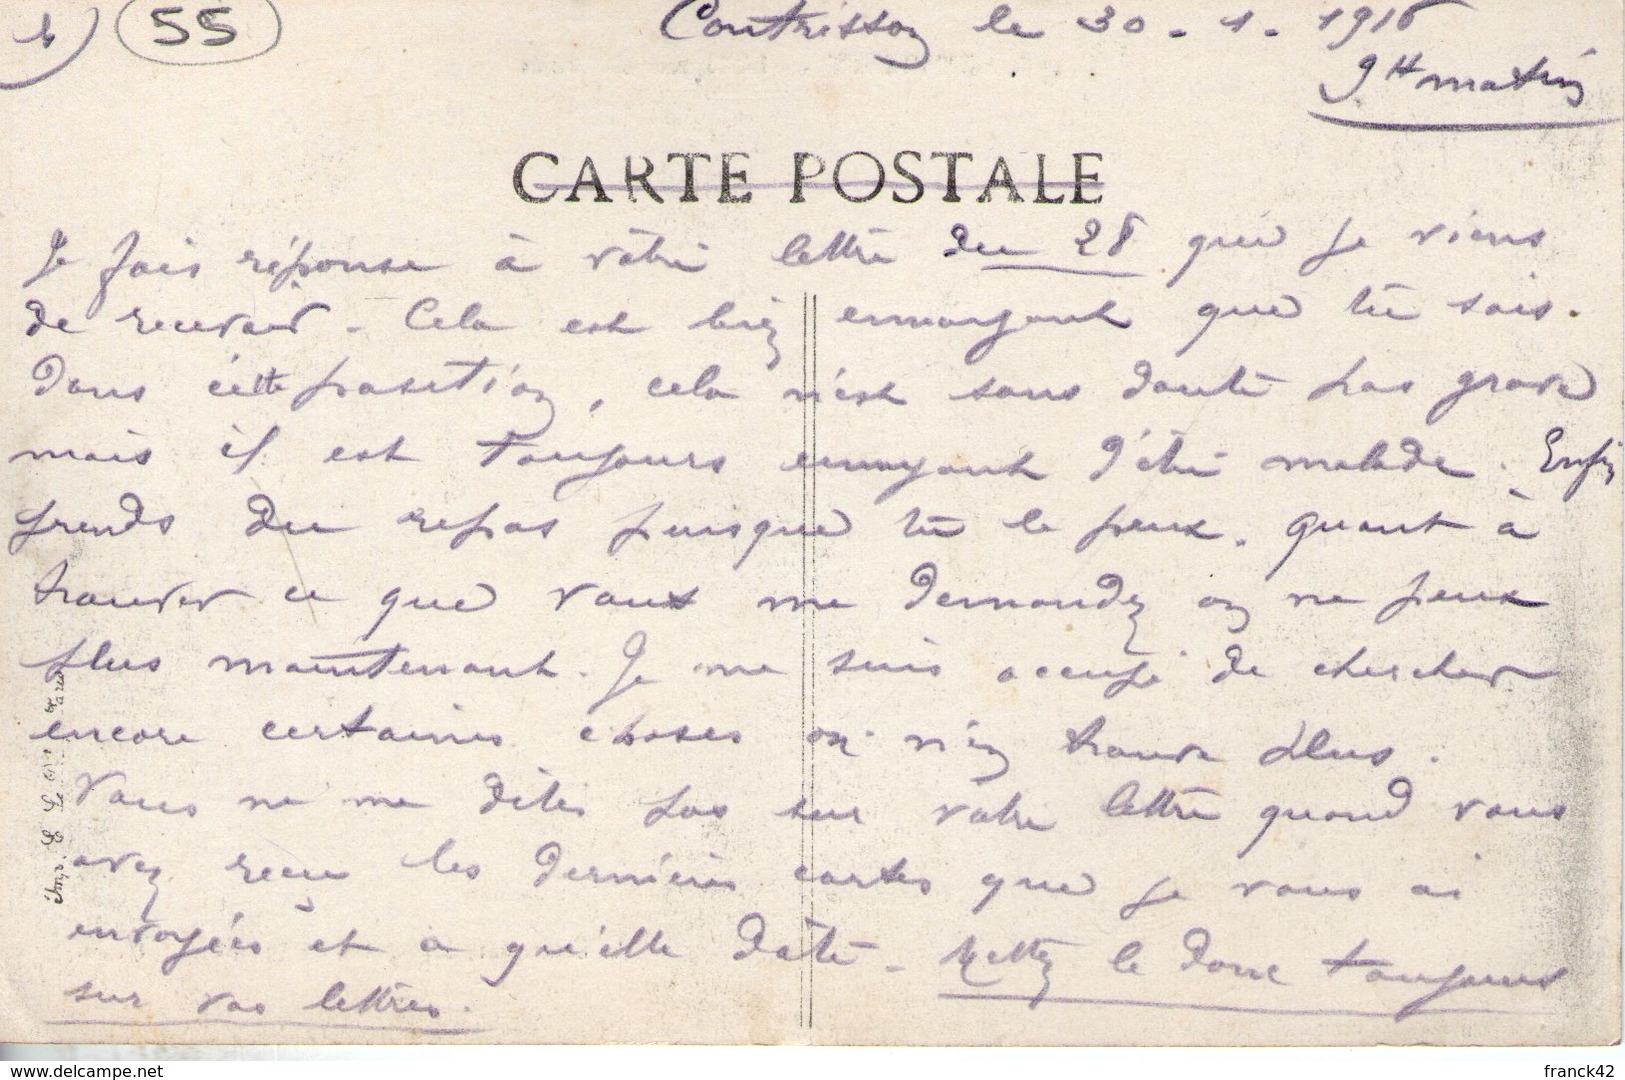 55
Contrisson le 30 - 1 - 1916
9H matin
CARTE POSTALE
Je fais réponse à votre lettre du 28 que je viens
de recevoir - Cela est bien ennuyant que tu sois
dans cette position, cela n'est sans doute pas grave
mais il est toujours ennuyant d'être malade. Enfin
prends du repos puisque tu le peux. quant à
trouver ce que vous me demandez on ne peux
plus maintenant. Je me suis occupé de chercher
encore certaines choses on n'en trouve plus.
Vous ne me dites pas sur votre lettre quand vous
avez reçu les dernières cartes que je vous ai
envoyées et a qu'elle date - Mettez le donc toujours
sur vos lettres.
www.delcampe.net
franck42